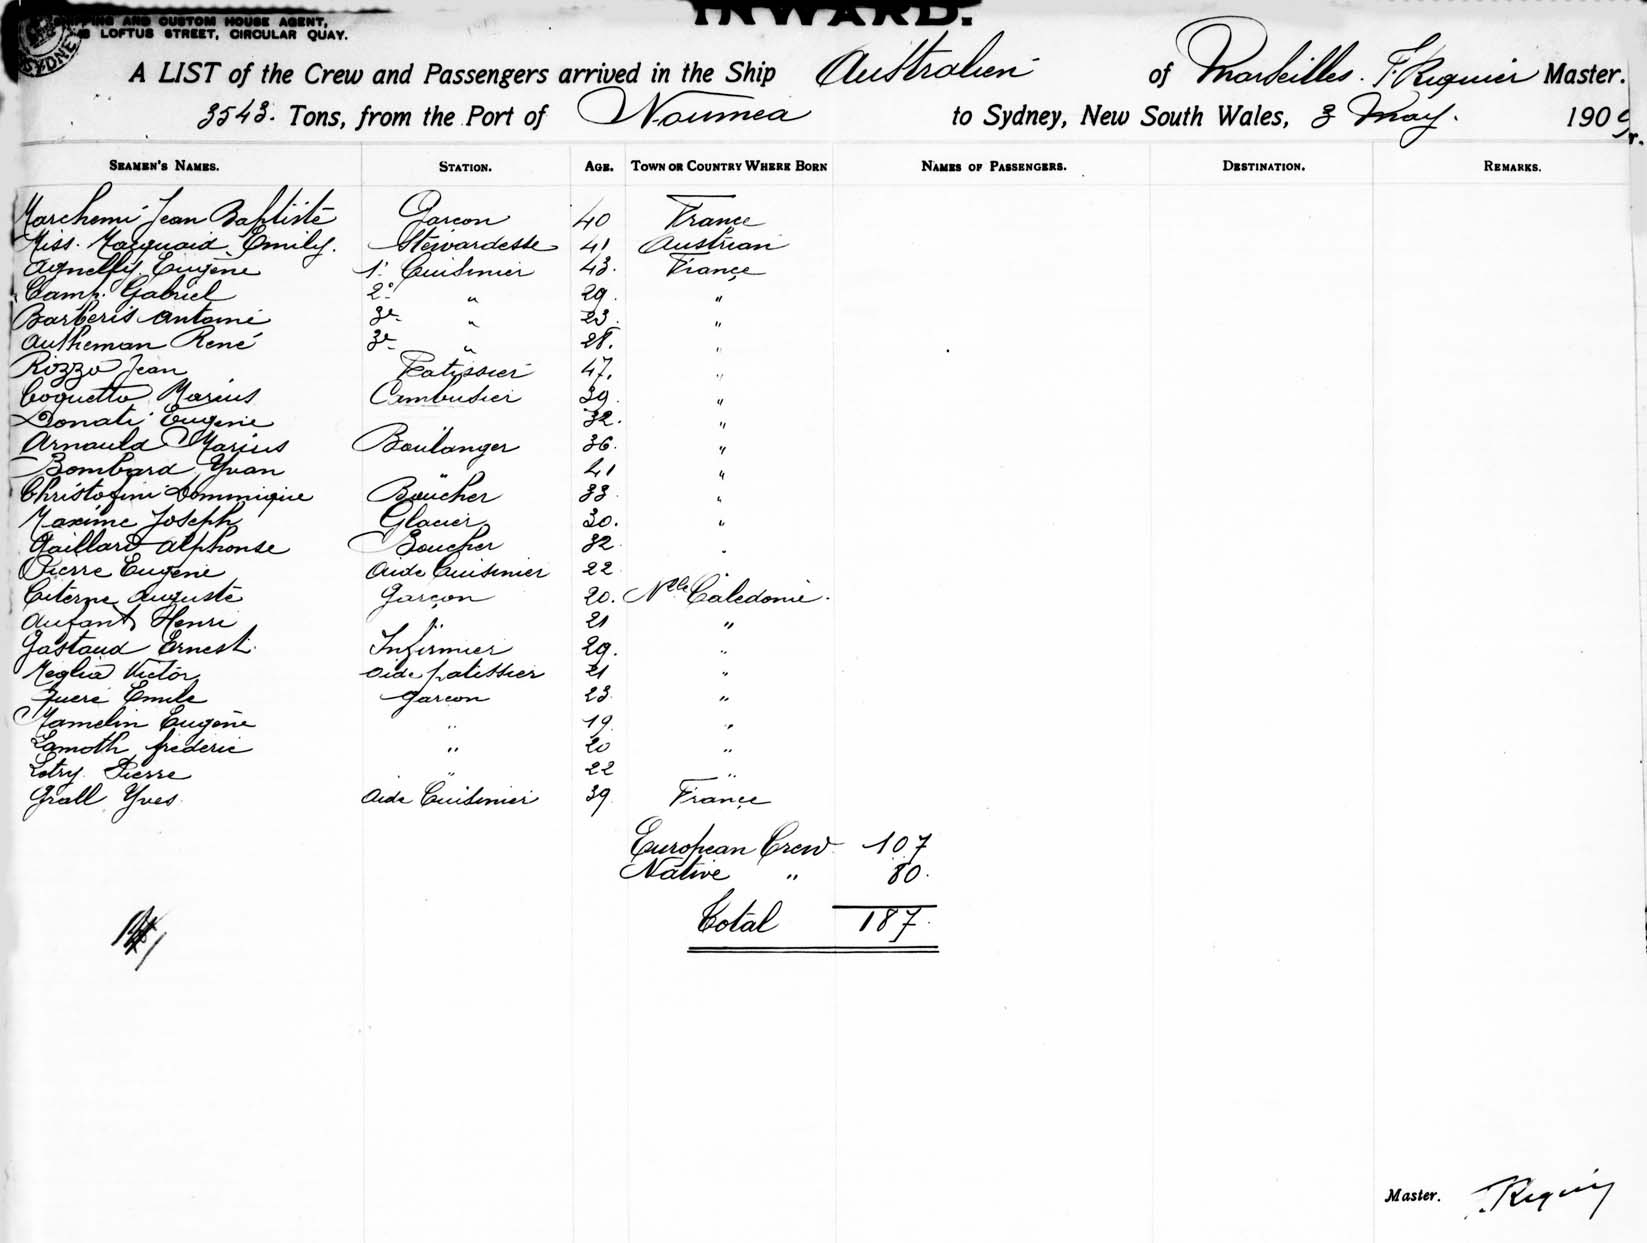 INWARD.
SHIPPING AND CUSTOM HOUSE AGENT,
LOFTUS STREET, CIRCULAR QUAY.
SYDNEY
A LIST of the Crew and Passengers arrived in the Ship Australien of Marseilles. F. Riquier Master.
3543. Tons, from the Port of Noumea to Sydney, New South Wales, 3 May. 190
SEAMEN'S NAMES. STATION. AGE. TOWN OR COUNTRY WHERE BORN NAMES OF PASSENGERS. DESTINATION. REMARKS.
Marchemi Jean Baptiste Garcon 40 France
Miss. Macquaid Emily. Stewardesse 41 Austrian
Agnelly Eugène 1. Cuisinier 43. France
Camp. Gabriel 2e " 29. "
Barberis Antoine 3e " 23. "
Autheman René 3e " 28. "
Rizzo Jean Patissier 47. "
Coquetto Marius Cambusier 39. "
Donati Eugene 32. "
Arnauld Marius Boulanger 36. "
Bombard Yvan " 41 "
Christofini Dominique Boucher 33. "
Maxime Joseph Glacier 30. "
Gaillard Alphonse Boucher 32 "
Pierre Eugene Aide Cuisinier 22 "
Citerne Auguste Garçon 20. Nlle Caledonie.
Aufant Henri " 21 "
Gastaud Ernest. Infirmier 29. "
Meglia Victor aide patissier 21 "
Quere Emile Garcon 23 "
Hamelin Eugene " 19. "
Lamoth frederic " 20 "
Lotry Pierre " 22 "
Grall Yves Aide Cuisinier 39 France
European Crew 107
Native " 80.
Total 187.
Master. F. Riquier